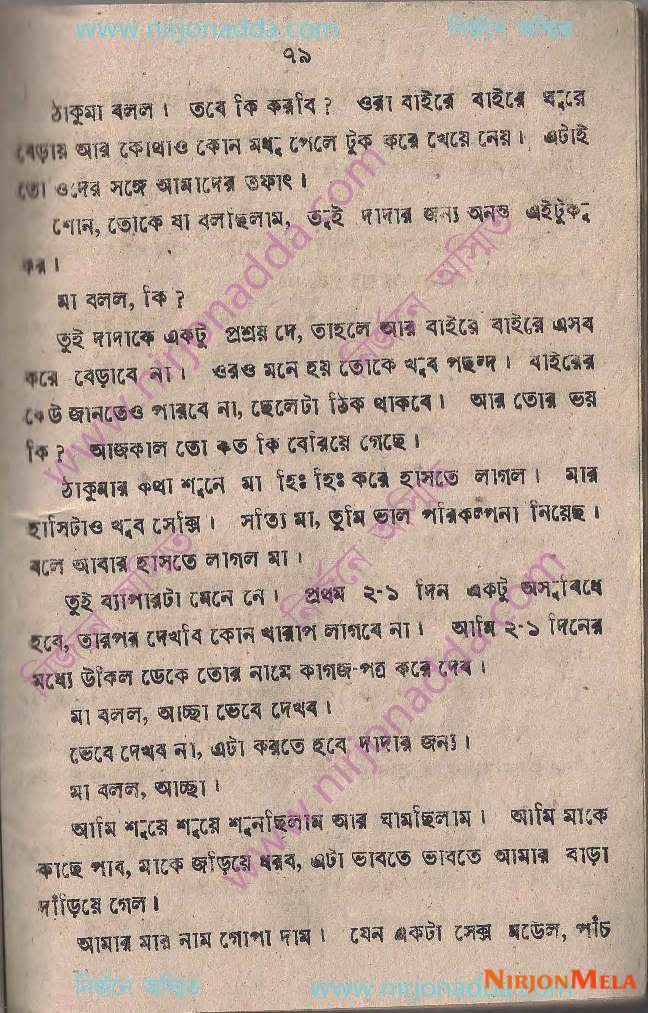 www.nirjonadda.com নির্জনে অস্মিত
৭৯
ঠাকুমা বলল। তবে কি করবি? ওরা বাইরে বাইরে ঘুরে
বেড়ায় আর কোথাও কোন মধু পেলে টুক করে খেয়ে নেয়। এটাই
তো ওদের সঙ্গে আমাদের তফাৎ।
শোন, তোকে যা বলছিলাম, তুই দাদার জন্য অন্তত এইটুকু
কর।
মা বলল, কি?
তুই দাদাকে একটু প্রশ্রয় দে, তাহলে আর বাইরে বাইরে এসব
করে বেড়াবে না। ওরও মনে হয় তোকে খুব পছন্দ। বাইরের
কেউ জানতেও পারবে না, ছেলেটা ঠিক থাকবে। আর তোর ভয়
কি? আজকাল তো কত কি বেরিয়ে গেছে।
ঠাকুমার কথা শুনে মা হিঃ হিঃ করে হাসতে লাগল। মার
হাসিটাও খুব সেক্সি। সত্যি মা, তুমি ভাল পরিকল্পনা নিয়েছ।
বলে আবার হাসতে লাগল মা।
তুই ব্যাপারটা মেনে নে। প্রথম ২-১ দিন একটু অসুবিধে
হবে, তারপর দেখবি কোন খারাপ লাগবে না। আমি ২-১ দিনের
মধ্যে উকিল ডেকে তোর নামে কাগজ-পত্র করে দেব।
মা বলল, আচ্ছা ভেবে দেখব।
ভেবে দেখব না, এটা করতে হবে দাদার জন্য।
মা বলল, আচ্ছা।
আমি শুয়ে শুয়ে শুনছিলাম আর ঘামছিলাম। আমি মাকে
কাছে পাব, মাকে জড়িয়ে ধরব, এটা ভাবতে ভাবতে আমার বাড়া
দাঁড়িয়ে গেল।
আমার মার নাম গোপা দাম। যেন একটা সেক্স মডেল, পাঁচ
নির্জনে অস্মিত www.nirjonadda.com
NIRJONMELA